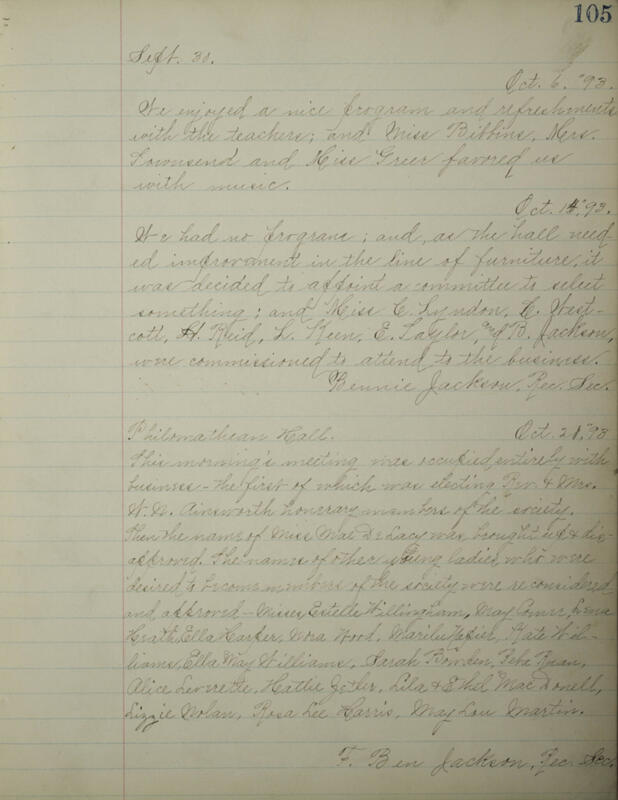 105
Sept. 30.
Oct. 6, '93.
We enjoyed a nice program and refreshments
with the teachers; and Miss Bibbins, Mrs.
Townsend and Miss Greer favored us
with music.
Oct. 14, '93.
We had no program; and, as the hall need-
ed improvement in the line of furniture, it
was decided to appoint a committee to select
something; and Miss C. Lyndon, C. West-
cott, H. Reid, L. Keen, E. Taylor, and B. Jackson,
were commissioned to attend to the business.
Bennie Jackson, Rec. Sec.
Philomathean Hall. Oct. 21, '93
This morning's meeting was occupied entirely with
business - the first of which was electing Rev. & Mrs.
W. N. Ainsworth honorary members of the society.
Then the name of Miss Mae De Lacy was brought up & dis-
approved. The names of other young ladies, who were
desired to become members of the society were reconsidered
and approved - Misses Estelle Willingham, May
Heath, Ella Harper, Nora Wood, Marilu Kate Wil-
liams, Ella May Williams, Sarah Bowden, Reba
Alice Leverette, Hattie Lila & Ethel MacDonell,
Lizzie Nolan, Rosa Lee Harris, May Lou Martin.
F. Ben Jackson, Rec. Sec.